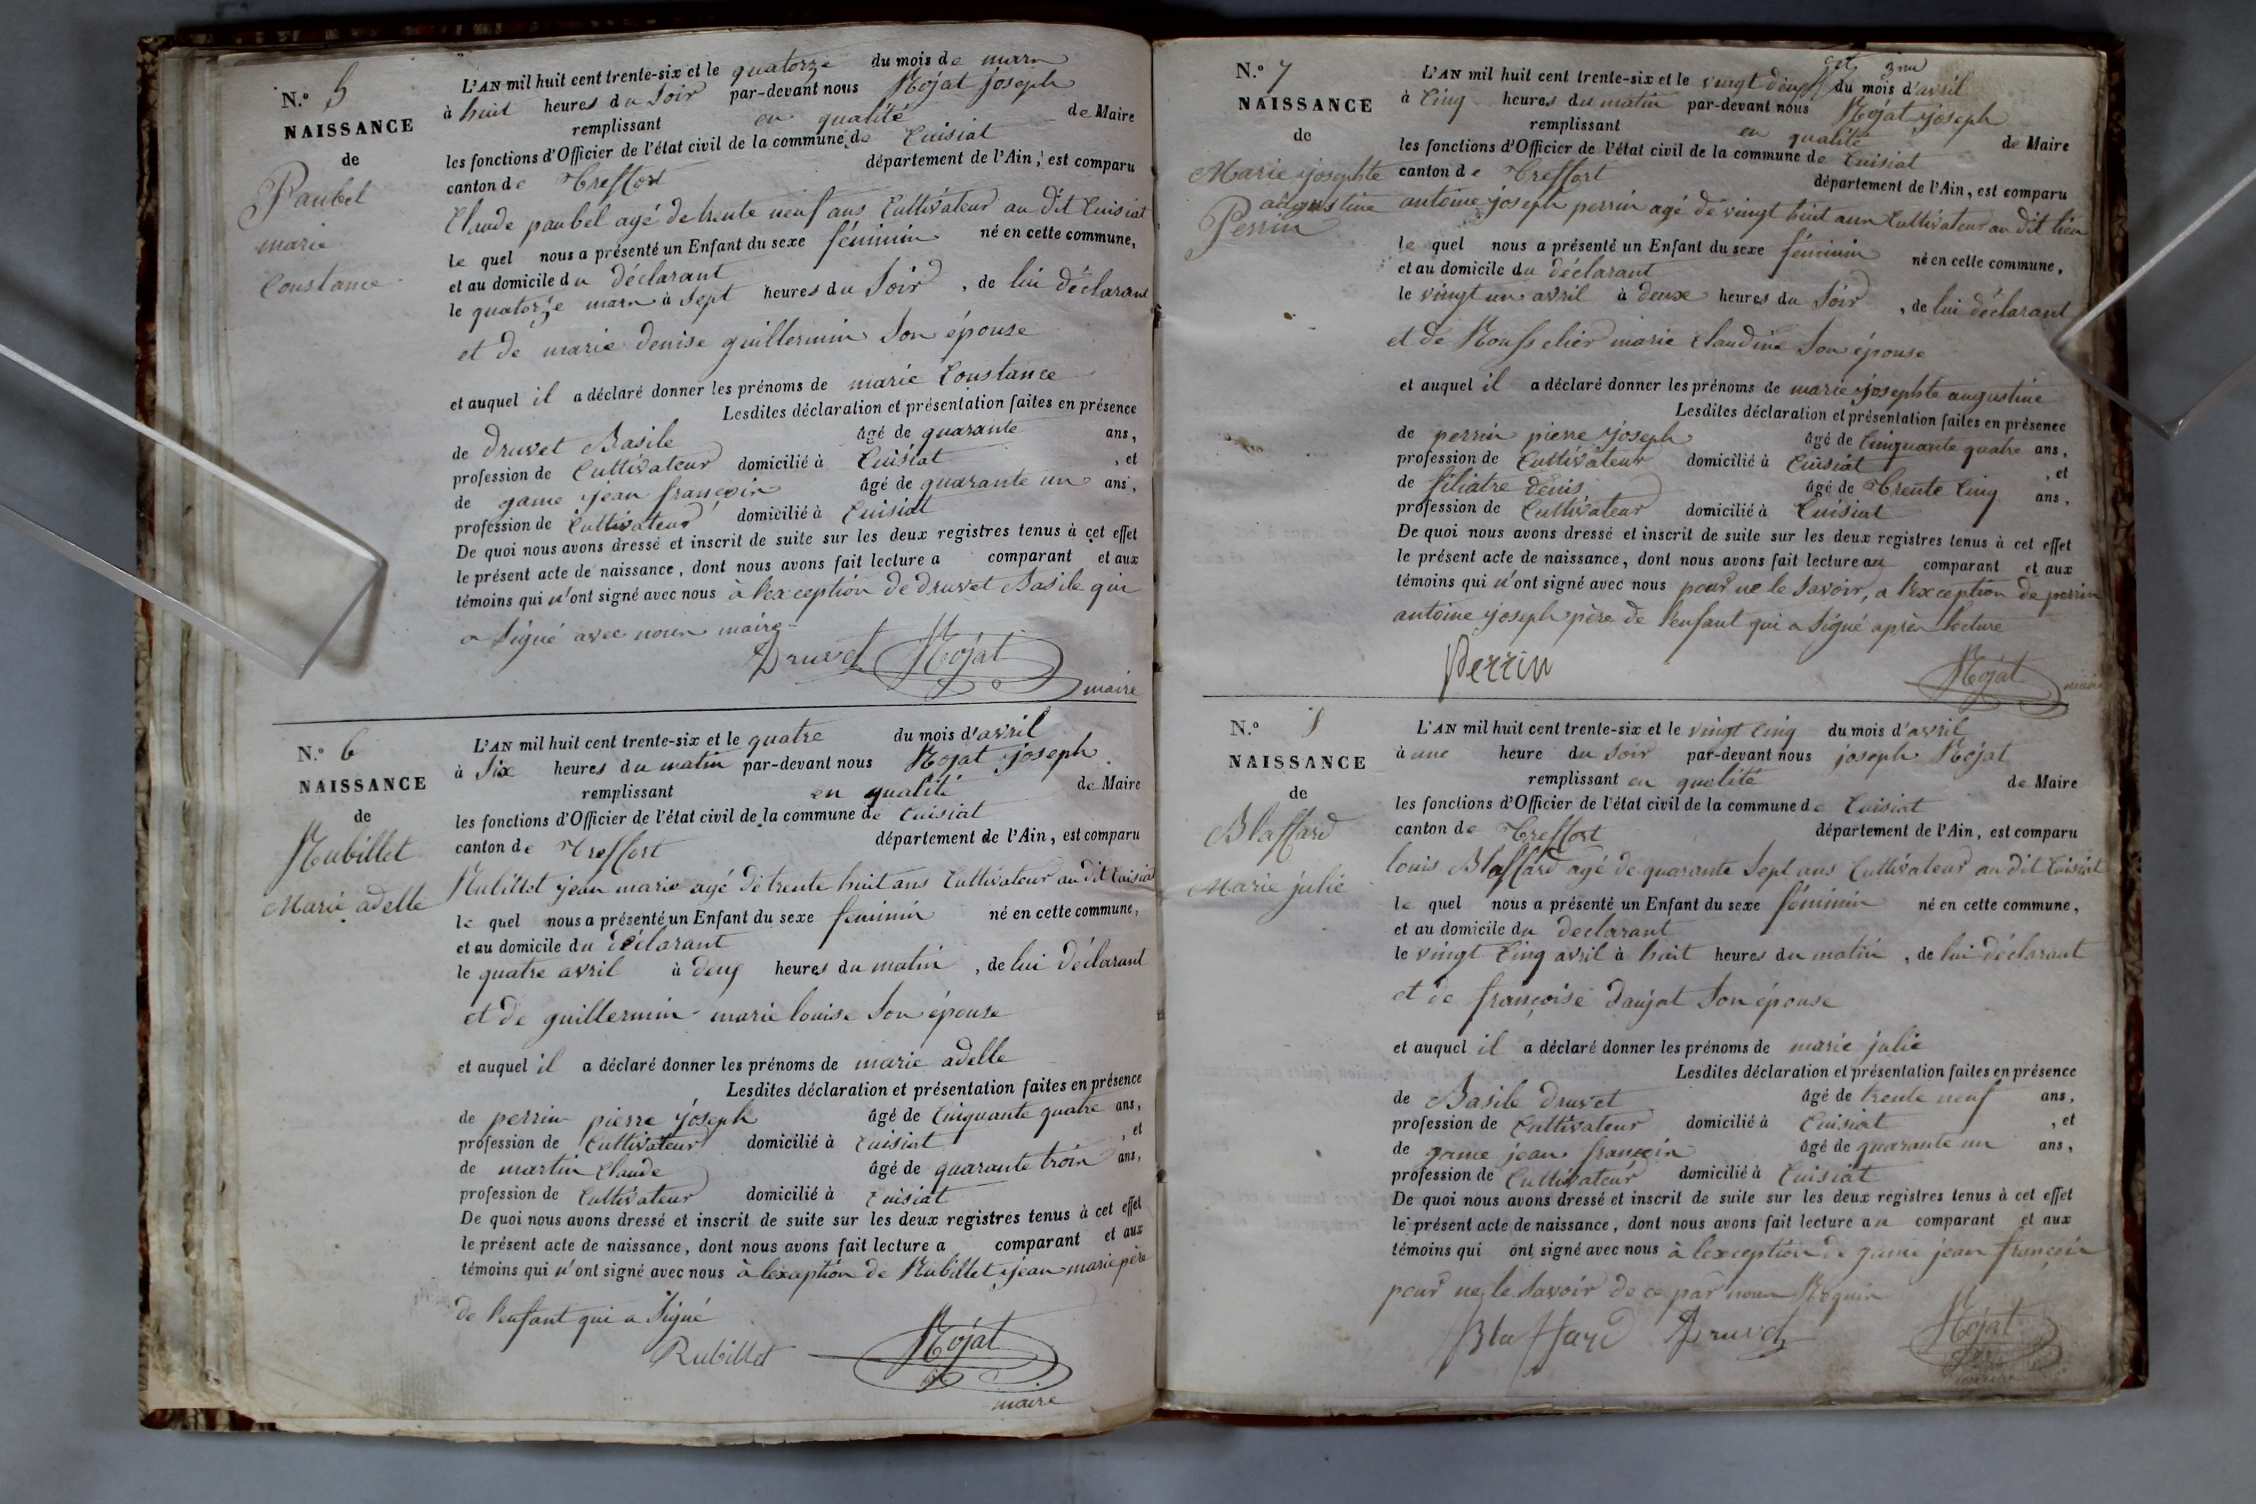 N.° 5
NAISSANCE
de
Paubel
marie
Constance
L'AN mil huit cent trente-six et le quatorze du mois de mars
à huit heures du soir par-devant nous Nojat joseph
remplissant en qualité de Maire
les fonctions d'Officier de l'état civil de la commune de Cuisiat
canton de Treffort département de l'Ain, est comparu
Claude paubel agé de trente neuf ans Cultivateur au dit Cuisiat
le quel nous a présenté un Enfant du sexe féminin né en cette commune,
et au domicile du déclarant
le quatorze mars à sept heures du soir, de lui déclarant
et de marie denise guillermin son épouse
et auquel il a déclaré donner les prénoms de marie Constance
Lesdites déclaration et présentation faites en présence
de druvet Basile âgé de quarante ans,
profession de Cultivateur domicilié à Cuisiat, et
de game jean françois âgé de quarante un ans,
profession de Cultivateur domicilié à Cuisiat
De quoi nous avons dressé et inscrit de suite sur les deux registres tenus à cet effet
le présent acte de naissance, dont nous avons fait lecture a comparant et aux
témoins qui n'ont signé avec nous à l'exception de druvet Basile qui
a signé avec nous maire
Druvet Nojat
maire
N.° 6
NAISSANCE
de
Rubillet
Marie adelle
L'AN mil huit cent trente-six et le quatre du mois d'avril
à six heures du matin par-devant nous Nojat joseph
remplissant en qualité de Maire
les fonctions d'Officier de l'état civil de la commune de Cuisiat
canton de Treffort département de l'Ain, est comparu
Rubillet jean marie agé de trente huit ans Cultivateur au dit Cuisiat
le quel nous a présenté un Enfant du sexe feminin né en cette commune,
et au domicile du déclarant
le quatre avril à deux heures du matin, de lui déclarant
et de guillermin marie louise son épouse
et auquel il a déclaré donner les prénoms de marie adelle
Lesdites déclaration et présentation faites en présence
de perrin pierre joseph âgé de Cinquante quatre ans,
profession de Cultivateur domicilié à Cuisiat, et
de martin Claude âgé de quarante trois ans,
profession de Cultivateur domicilié à Cuisiat
De quoi nous avons dressé et inscrit de suite sur les deux registres tenus à cet effet
le présent acte de naissance, dont nous avons fait lecture a comparant et aux
témoins qui n'ont signé avec nous à l'exception de Rubillet jean marie père
de l'enfant qui a signé
Rubillet Nojat
maire
N.° 7
NAISSANCE
de
Marie josephte
augustine
Perrin
L'AN mil huit cent trente-six et le vingt deux du mois d'avril
à Cinq heures du matin par-devant nous Nojat joseph
remplissant en qualité de Maire
les fonctions d'Officier de l'état civil de la commune de Cuisiat
canton de Treffort département de l'Ain, est comparu
antoine joseph perrin agé de vingt huit ans Cultivateur au dit lieu
le quel nous a présenté un Enfant du sexe féminin né en cette commune,
et au domicile du déclarant
le vingt un avril à deux heures du soir, de lui déclarant
et de Rousselier marie Claudine son épouse
et auquel il a déclaré donner les prénoms de marie josephte augustine
Lesdites déclaration et présentation faites en présence
de perrin pierre joseph âgé de Cinquante quatre ans,
profession de Cultivateur domicilié à Cuisiat, et
de filiatre denis âgé de trente Cinq ans,
profession de Cultivateur domicilié à Cuisiat
De quoi nous avons dressé et inscrit de suite sur les deux registres tenus à cet effet
le présent acte de naissance, dont nous avons fait lecture au comparant et aux
témoins qui n'ont signé avec nous pour ne le savoir, a l'exception de perrin
antoine joseph père de l'enfant qui a signé après lecture
Perrin Nojat
maire
N.° 8
NAISSANCE
de
Blaffard
Marie julie
L'AN mil huit cent trente-six et le vingt Cinq du mois d'avril
à une heure du soir par-devant nous joseph Nojat
remplissant en qualité de Maire
les fonctions d'Officier de l'état civil de la commune de Cuisiat
canton de Treffort département de l'Ain, est comparu
louis Blaffard agé de quarante sept ans Cultivateur au dit Cuisiat
le quel nous a présenté un Enfant du sexe féminin né en cette commune,
et au domicile du declarant
le vingt Cinq avril à huit heures du matin, de lui déclarant
et de françoise daujat son épouse
et auquel il a déclaré donner les prénoms de marie julie
Lesdites déclaration et présentation faites en présence
de Basile druvet âgé de trente neuf ans,
profession de Cultivateur domicilié à Cuisiat, et
de game jean françois âgé de quarante un ans,
profession de Cultivateur domicilié à Cuisiat
De quoi nous avons dressé et inscrit de suite sur les deux registres tenus à cet effet
le présent acte de naissance, dont nous avons fait lecture au comparant et aux
témoins qui ont signé avec nous à l'exception de game jean françois
pour ne le savoir de ce par nous Requis
Blaffard Druvet Nojat
maire